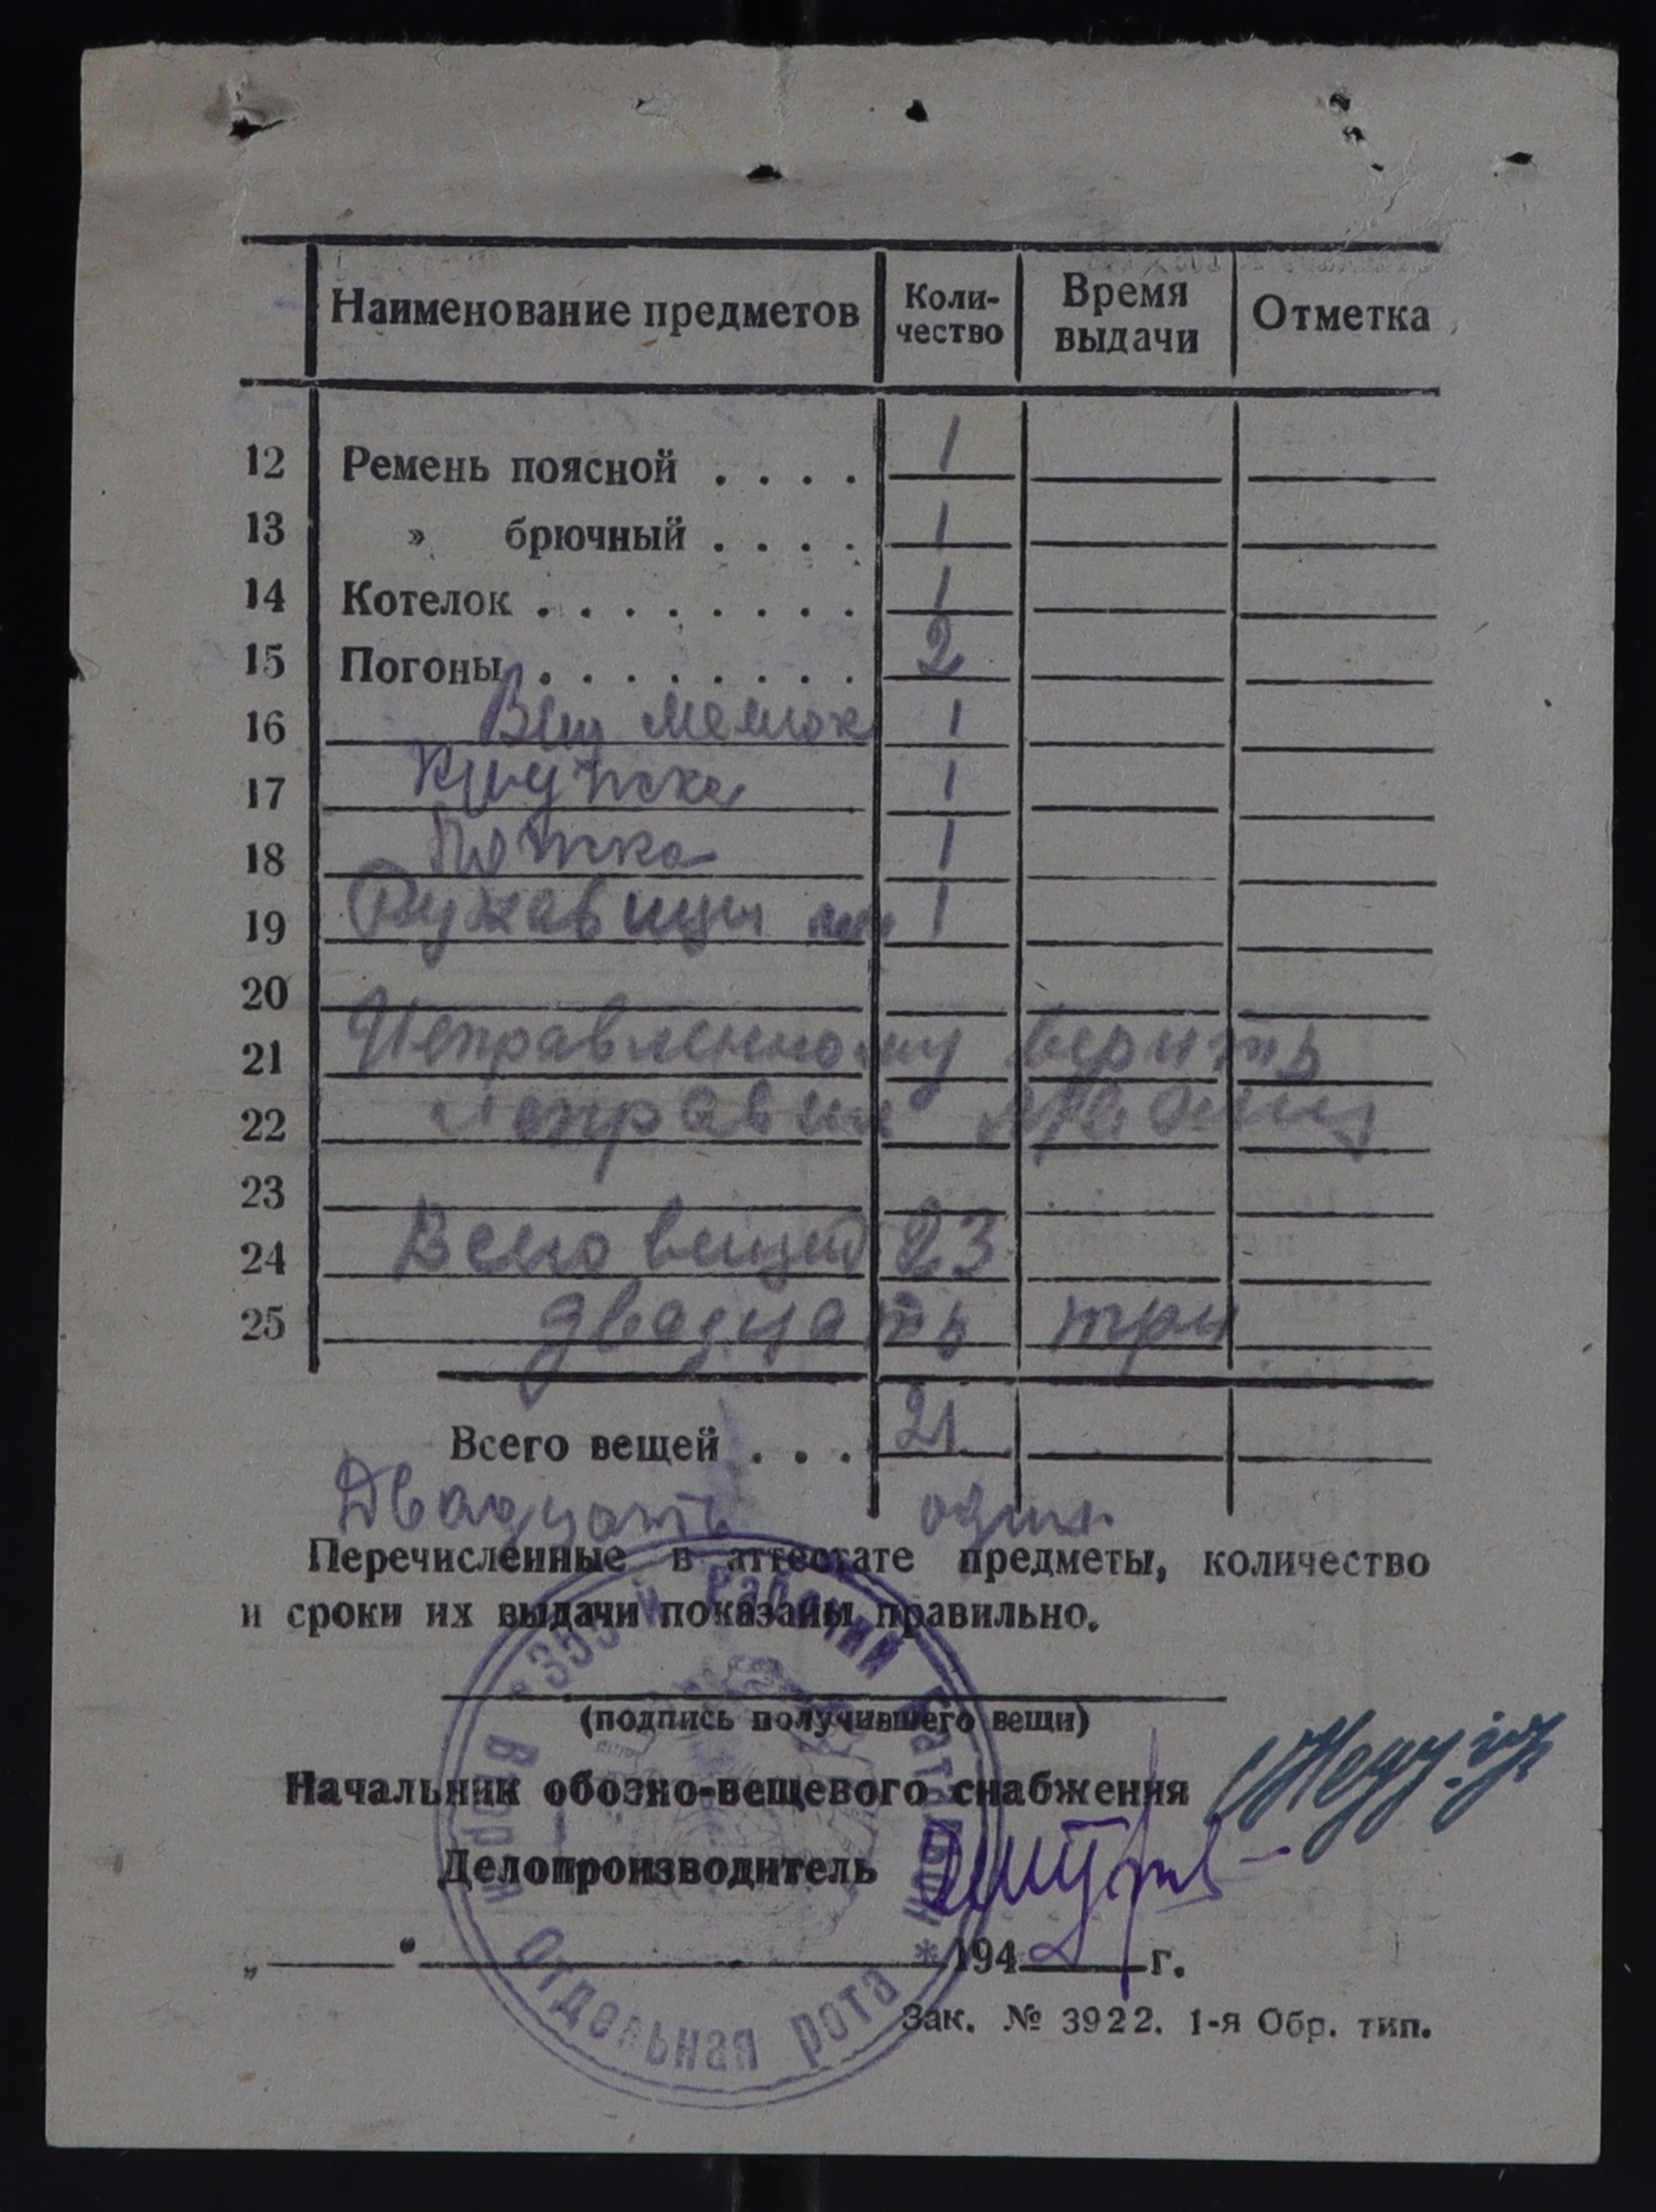 Наименование предметов Коли-чество Время выдачи Отметка
12 Ремень поясной . . . . 1
13 » брючный . . . . 1
14 Котелок . . . . . . . . 1
15 Погоны . . . . . . . . 2
16 Вещ мешок 1
17 Кружка 1
18 Ложка 1
19 Рукавицы 1
20
21 Исправленному верить
22 исправил
23
24 Всего вещей 23
25 двадцать три
Всего вещей . . . 21
Двадцать один
Перечисленные в аттестате предметы, количество
и сроки их выдачи показаны правильно.
(подпись получившего вещи)
Начальник обозно-вещевого снабжения
Делопроизводитель
„ “ 194 г.
Зак. № 3922. 1-я Обр. тип.
Рабочий батальон * Отдельная рота